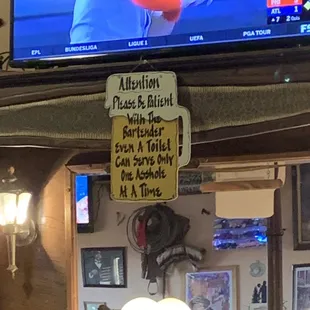 ATL 1
7 2 Outs
EFL BUNDESLIGA LIGUE 1 UEFA PGA TOUR
Attention
Please Be Patient
With The
Bartender
Even A Toilet
Can Serve Only
One Asshole
At A Time